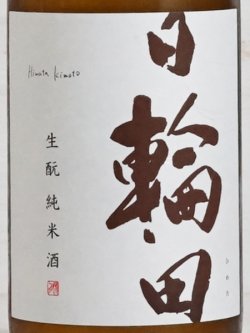 日輪田
ひわた
Hiwata Kimoto
生酛純米酒